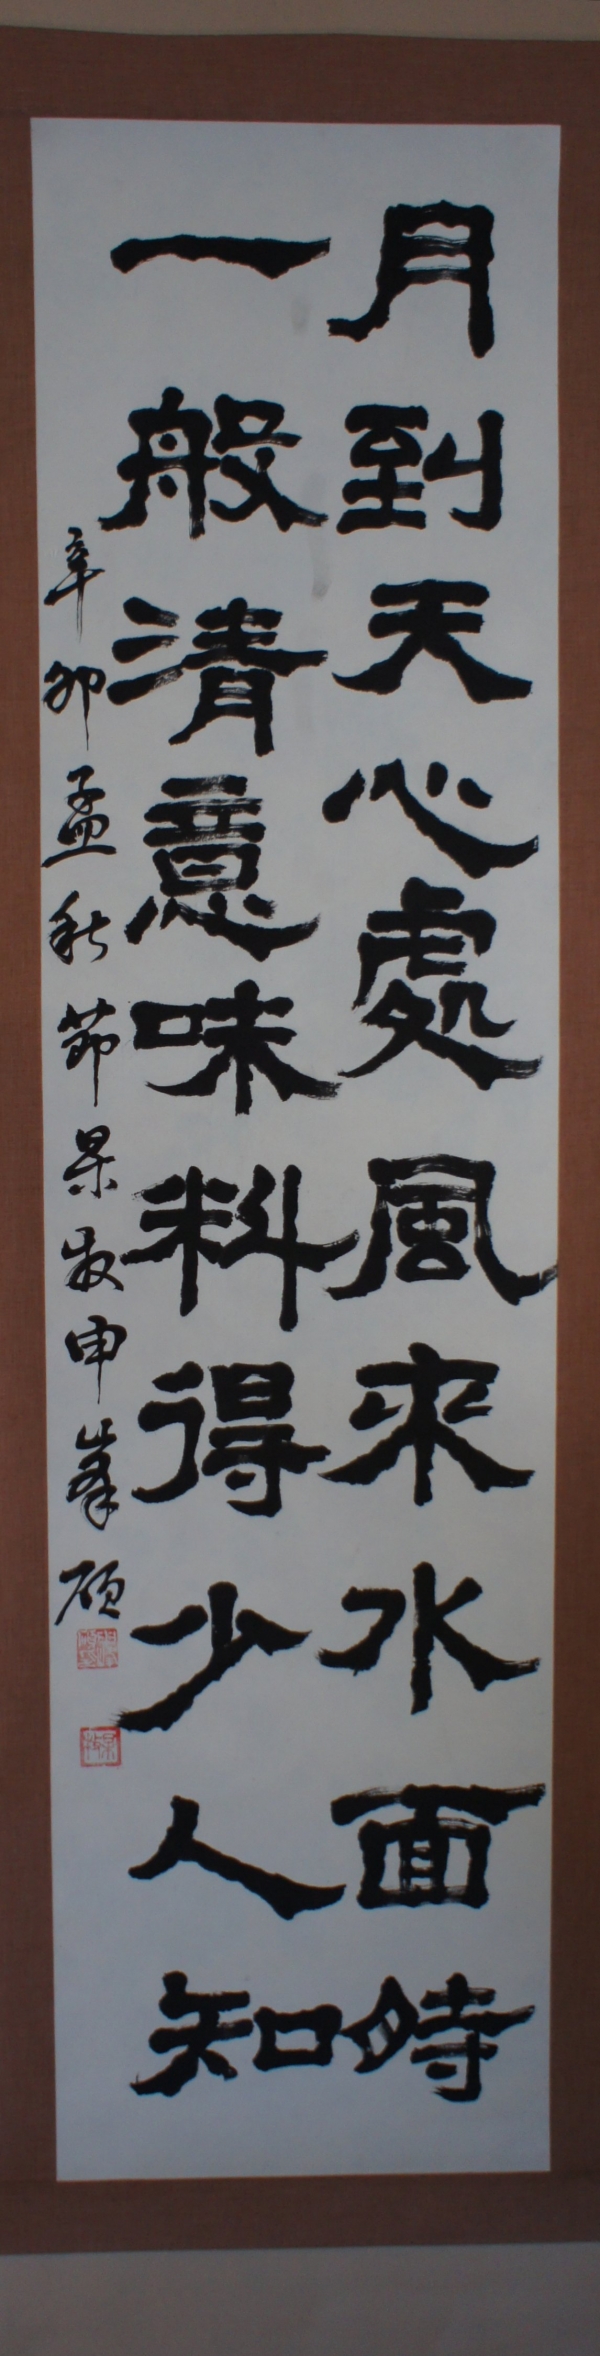 月到天心處風來水面時
一般清意味料得少人知
辛卯孟秋節杲牧申峯碩